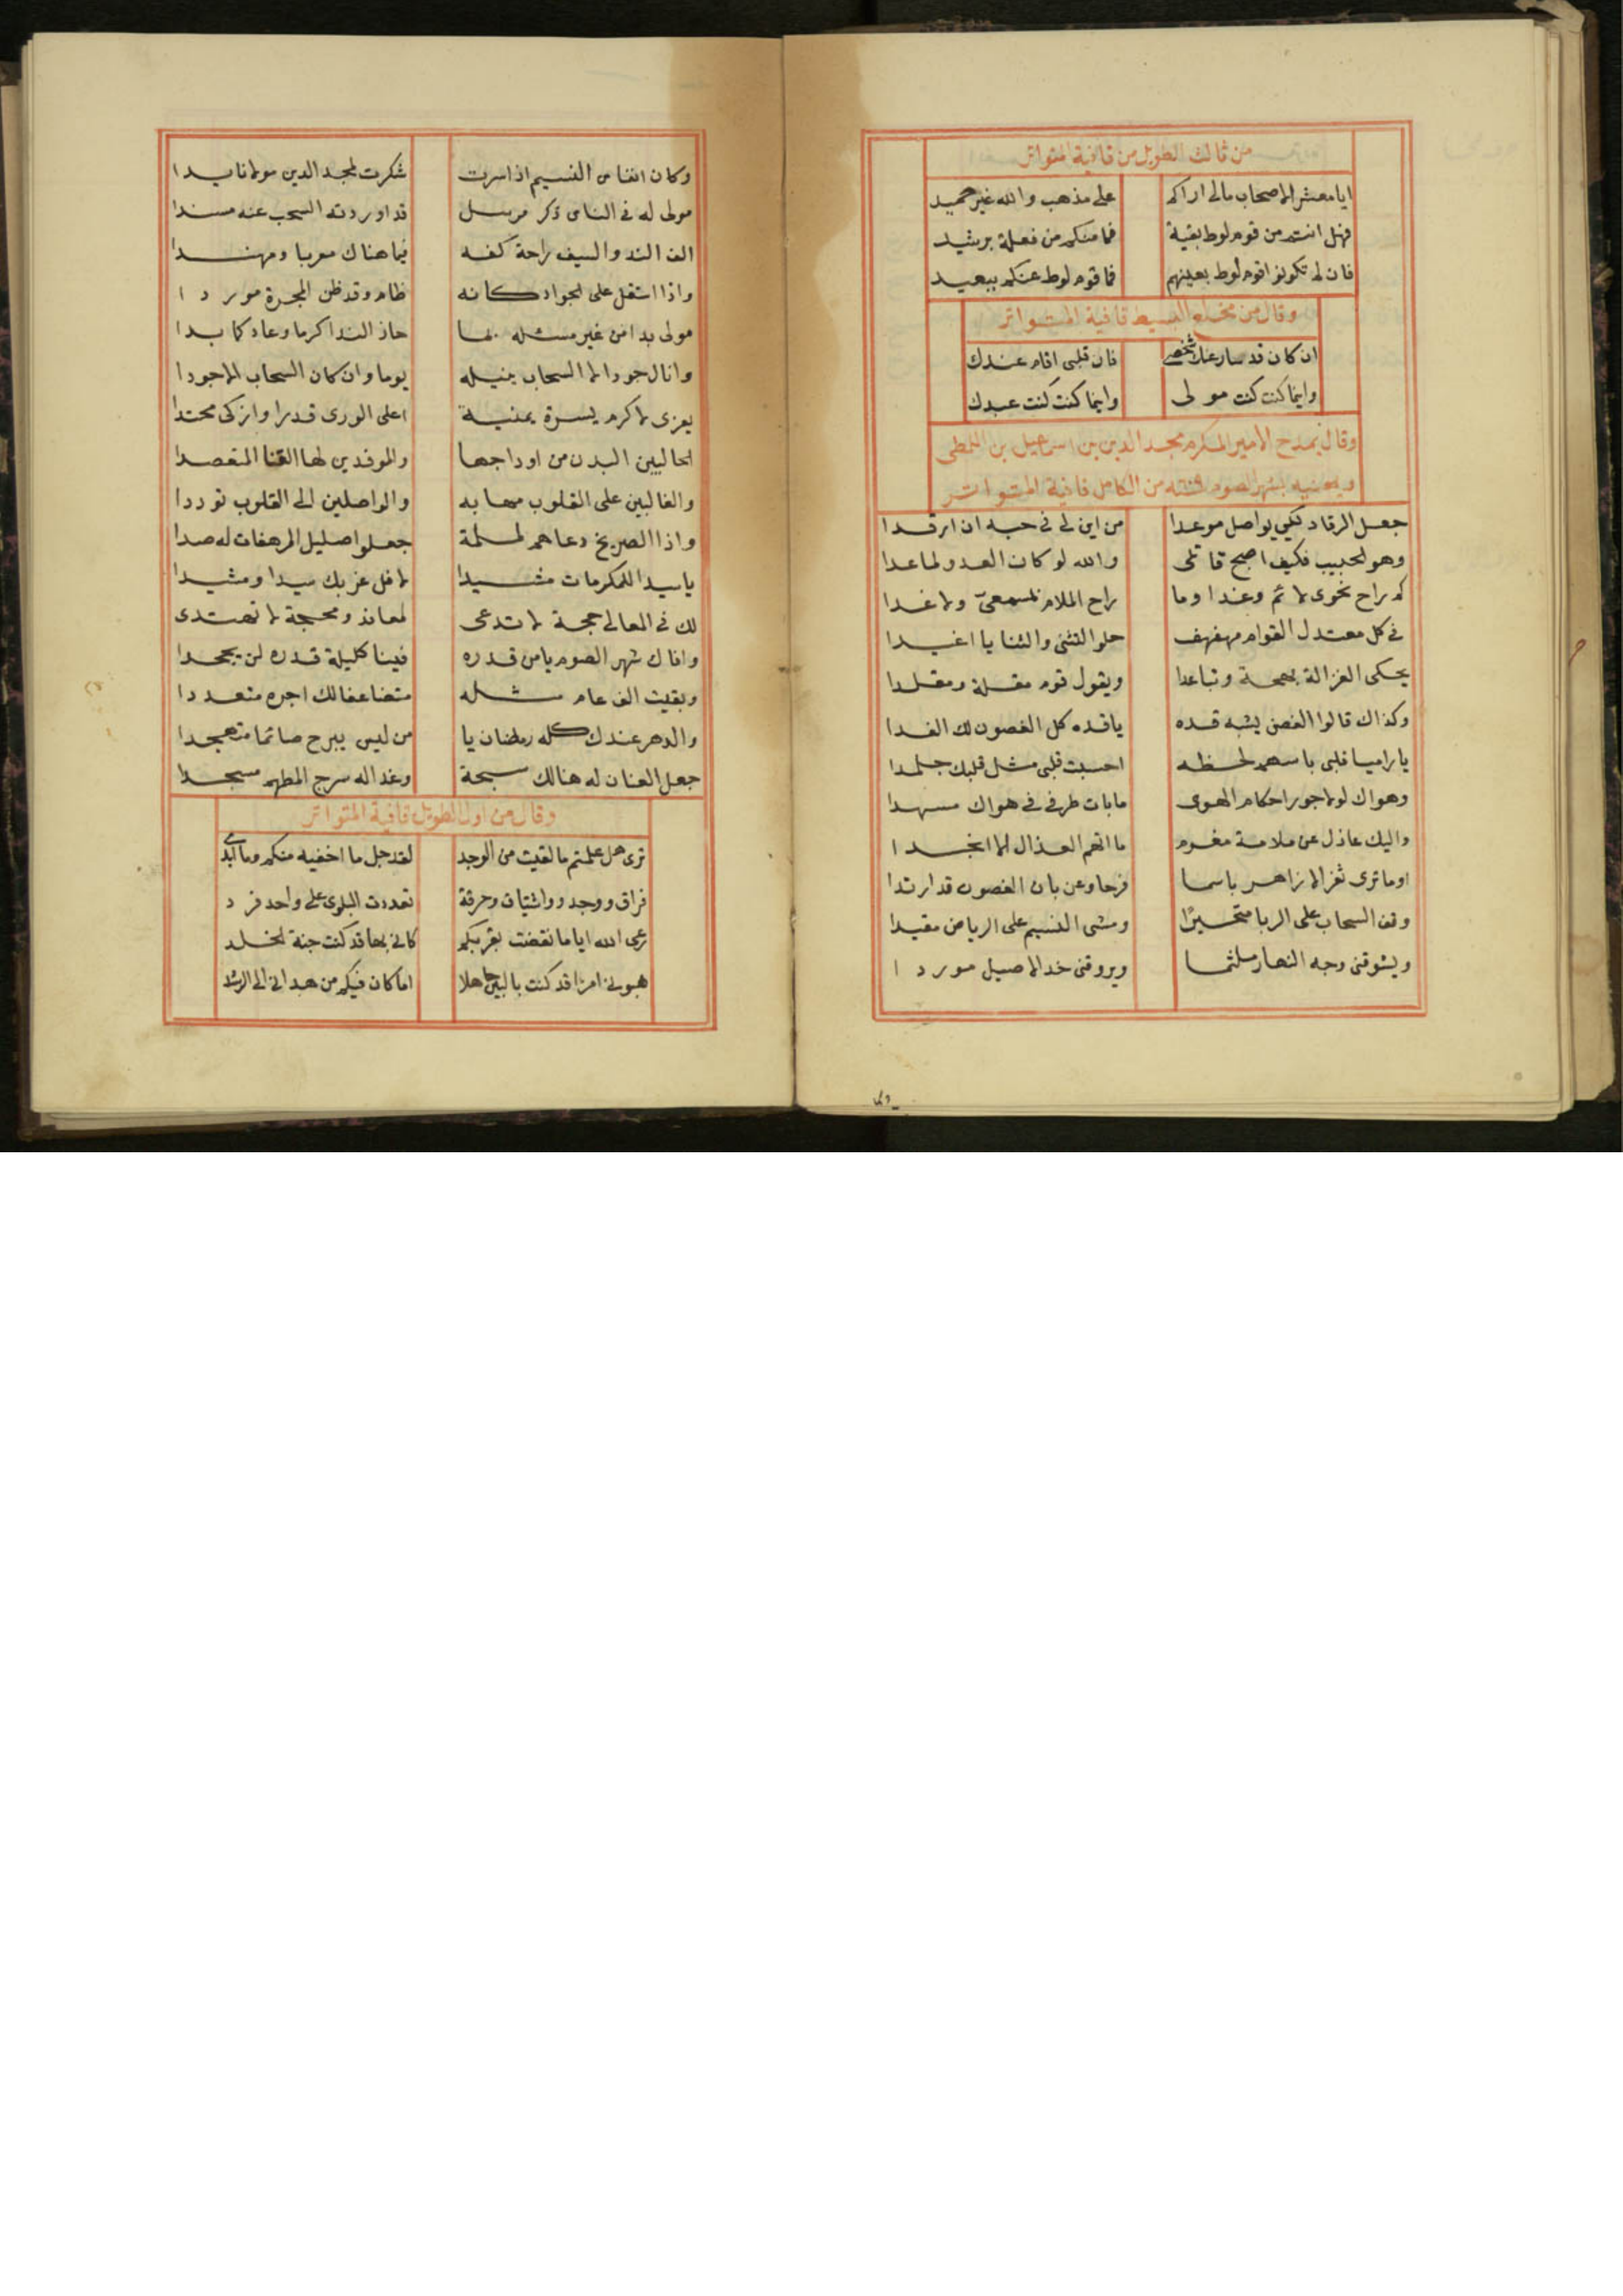 من ثالث الطويل من قافية المتواتر
ايا معشر الاصحاب مالى اراكم على مذهب والله غير حميد
فهل انتم من قوم لوط بقية فما منكم من فعلة برشيد
فان لم تكونوا قوم لوط بعينهم فما قوم لوط عنكم ببعيد
وقال من مخلع البسيط قافية المتواتر
ان كان قد سار عنك شخصى فان قلبى اقام عندك
واينما كنت كنت مولى واينما كنت كنت عبدك
وقال يمدح الامير المكرم مجد الدين بن اسمعيل بن اللمطى
ويهنيه بشهر الصوم من الكامل قافية المتواتر
جعل الرقاد لكى يواصل موعدا من اين لى فى حبه ان ارقدا
وهو الحبيب فكيف اصبح قاتلى والله لو كان العدو لما عدا
كم راح نحوى لائم وغدا وما راح الملام بمسمعىّ ولا غدا
فى كل معتدل القوام مهفهف حلو التثنى والثنايا اغيدا
يحكى الغزالة بهجة وتباعدا ويقول قوم مقلة ومقلدا
وكذاك قالوا الغصن يشبه قده ياقده كل الغصون لك الفدا
يا راميا قلبى باسهم لحظه احسبت قلبى مثل قلبك جلمدا
وهواك لولا جور احكام الهوى مابات طرفى فى هواك مسهدا
واليك عاذل عن ملامة مغرم ما اتهم العذال الا انجدا
اوما ترى ثغر الازاهر باسما فرحا وعن بان الغصون قد ارتدا
وقف السحاب على الربا متحيرًا ومشى النسيم على الرياض مقيدا
ويشوقنى وجه النهار ملثما ويروقنى خد الاصيل موردا
وكان انفاس النسيم اذا سرت شكرت لمجد الدين مولانا يدا
مولى له فى الناس ذكر مرسل قد اوردته السحب عنه مسندا
الف الندو السيف راحة كفه فيما هناك معربا ومهندا
واذا استقل على الجواد كانه ظام وقد ظن المجرة موردا
مولى بدا من غير مسئله بما حاز الندا كرما وعاد كما بدا
وانال جودا لا السحاب ينيله يوما وان كان السحاب الاجودا
يعزى لاكرم يسرة يمنية اعلى الورى قدرا وازكى محتدا
الحاليين البدن من اوداجها والموفدين لها القنا المقصدا
والغالبين على القلوب مهابه والواصلين الى القلوب توددا
واذا الصريخ دعاهم لملمة جعلوا صليل المرهفات له صدا
ياسيدا للمكرمات مشيدا لا فل غربك سيدا ومشيدا
لك فى المعالى حجة لا تدعى لمعاند ومحجة لا تهتدى
وافاك شهر الصوم يامن قدره فينا كليلة قدره لن يجحدا
وبقيت الف عام مثله متضاعفا لك اجره متعددا
والدهر عندك كله رمضان يا من ليس يبرح صائما متهجدا
جعل العنان له هنالك سبحة وغدا له سرج المطهم مسجدا
وقال من اول الطويل قافية المتواتر
ترى هل علمتم ما لقيت من الوجد لقد جل ما اخفيه منكم وما ابدى
فراق ووجد واشتياق وحرقة تعددت البلوى على واحد فرد
رعى الله اياما تقضت بقربكم كانى بها قد كنت جنة الخلد
هبونى امرًا قد كنت بالبين جاهلا اما كان فيكم من هدانى الى الرشد